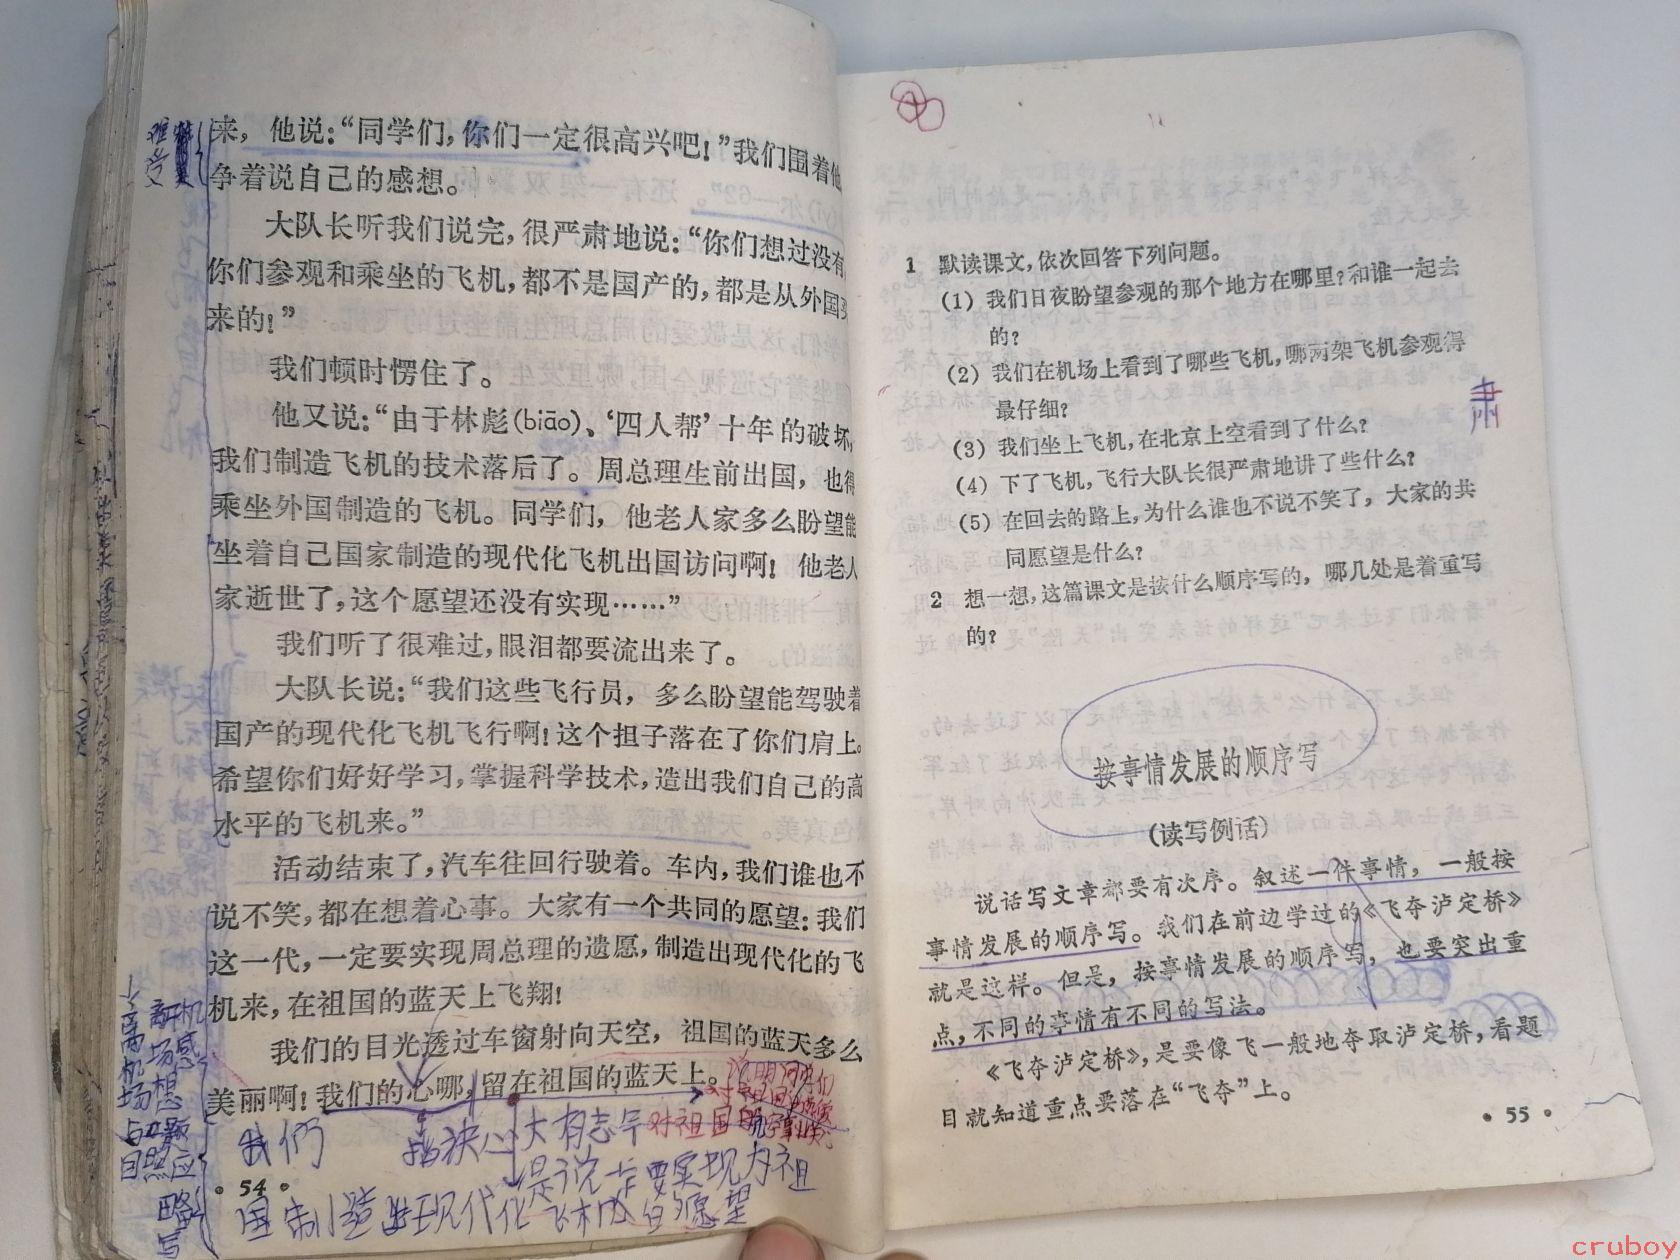 来，他说：“同学们，你们一定很高兴吧！”我们围着他
争着说自己的感想。
大队长听我们说完，很严肃地说：“你们想过没有
你们参观和乘坐的飞机，都不是国产的，都是从外国
来的！”
我们顿时愣住了。
他又说：“由于林彪(biāo)、‘四人帮’十年的破坏，
我们制造飞机的技术落后了。周总理生前出国，也得
乘坐外国制造的飞机。同学们，他老人家多么盼望能
坐着自己国家制造的现代化飞机出国访问啊！他老人
家逝世了，这个愿望还没有实现……”
我们听了很难过，眼泪都要流出来了。
大队长说：“我们这些飞行员，多么盼望能驾驶着
国产的现代化飞机飞行啊！这个担子落在了你们肩上。
希望你们好好学习，掌握科学技术，造出我们自己的高
水平的飞机来。”
活动结束了，汽车往回行驶着。车内，我们谁也不
说不笑，都在想着心事。大家有一个共同的愿望：我们
这一代，一定要实现周总理的遗愿，制造出现代化的飞
机来，在祖国的蓝天上飞翔！
我们的目光透过车窗射向天空，祖国的蓝天多么
美丽啊！我们的心哪，留在祖国的蓝天上。
难受
离机场
感想
与题目照应
略写
我們 指决心 大有志气 对祖国
是说一定要实现为祖
国制造出现代化飞机的愿望
·54·
1 默读课文，依次回答下列问题。
(1) 我们日夜盼望参观的那个地方在哪里？和谁一起去
的？
(2) 我们在机场上看到了哪些飞机，哪两架飞机参观得
最仔细？
(3) 我们坐上飞机，在北京上空看到了什么？
(4) 下了飞机，飞行大队长很严肃地讲了些什么？
(5) 在回去的路上，为什么谁也不说不笑了，大家的共
同愿望是什么？
2 想一想，这篇课文是按什么顺序写的，哪几处是着重写
的？
肃
按事情发展的顺序写
(读写例话)
说话写文章都要有次序。叙述一件事情，一般按
事情发展的顺序写。我们在前边学过的《飞夺泸定桥》
就是这样。但是，按事情发展的顺序写，也要突出重
点，不同的事情有不同的写法。
《飞夺泸定桥》，是要像飞一般地夺取泸定桥，看题
目就知道重点要落在“飞夺”上。
·55·
cruboy